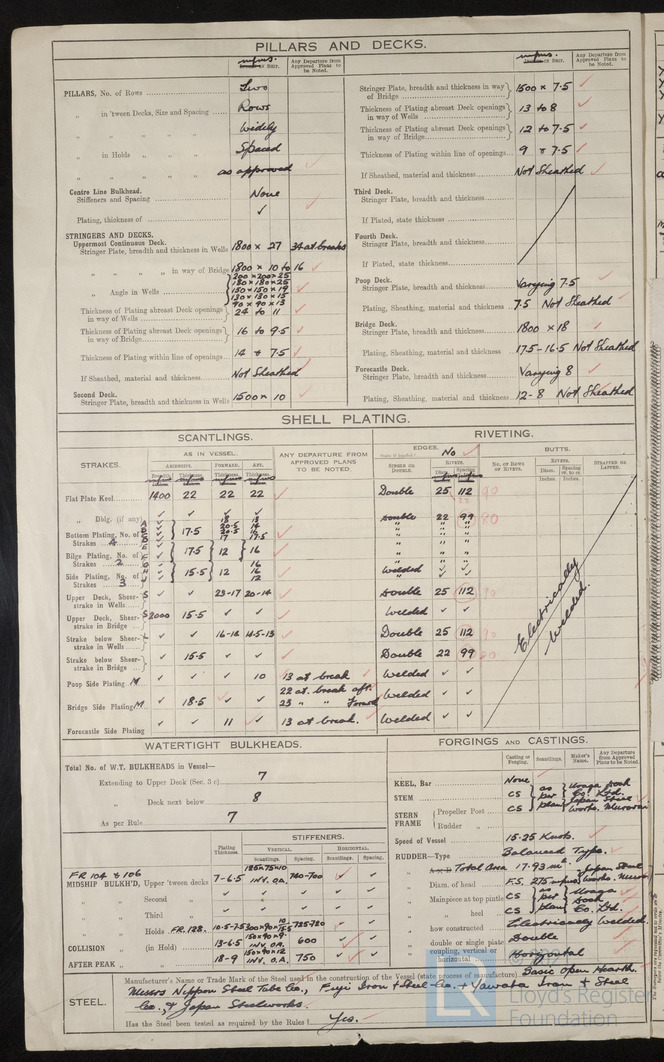 PILLARS AND DECKS.
m/m or Scr.
Any Departure from Approved Plans to be Noted.
PILLARS, No. of Rows Two
„ in 'tween Decks, Size and Spacing Rows
„ „ „ „ Widely
„ in Holds „ „ Spaced
„ „ „ „ as approved
Centre Line Bulkhead.
Stiffeners and Spacing None
Plating, thickness of ✓
STRINGERS AND DECKS.
Uppermost Continuous Deck.
Stringer Plate, breadth and thickness in Wells 1800 × 27 34 at breaks
„ „ „ „ in way of Bridge 1800 × 10 to 16
„ Angle in Wells 200 × 200 × 25
180 × 180 × 25
150 × 150 × 19
130 × 130 × 15
90 × 90 × 13
Thickness of Plating abreast Deck openings in way of Wells 24 to 11
Thickness of Plating abreast Deck openings in way of Bridge 16 to 9.5
Thickness of Plating within line of openings 14 & 7.5
If Sheathed, material and thickness Not Sheathed
Second Deck.
Stringer Plate, breadth and thickness in Wells 1500 × 10
Any Departure from Approved Plans to be Noted.
Stringer Plate, breadth and thickness in way of Bridge 1500 × 7.5
Thickness of Plating abreast Deck openings in way of Wells 13 to 8
Thickness of Plating abreast Deck openings in way of Bridge 12 to 7.5
Thickness of Plating within line of openings 9 & 7.5
If Sheathed, material and thickness Not Sheathed
Third Deck.
Stringer Plate, breadth and thickness
If Plated, state thickness
Fourth Deck.
Stringer Plate, breadth and thickness
If Plated, state thickness
Poop Deck.
Stringer Plate, breadth and thickness Varying 7.5
Plating, Sheathing, material and thickness 7.5 Not Sheathed
Bridge Deck.
Stringer Plate, breadth and thickness 1800 × 18
Plating, Sheathing, material and thickness 17.5-16.5 Not Sheathed
Forecastle Deck.
Stringer Plate, breadth and thickness Varying 8
Plating, Sheathing, material and thickness 12-8 Not Sheathed
SHELL PLATING.
SCANTLINGS.
RIVETING.
STRAKES.
AS IN VESSEL.
ANY DEPARTURE FROM APPROVED PLANS TO BE NOTED.
EDGES. No
BUTTS.
AMIDSHIPS. FORWARD. AFT.
Breadth Thickness Thickness Thickness
SINGLE OR DOUBLE. RIVETS. Diam. Spacing
No. OF ROWS OF RIVETS. RIVETS. Diam. Spacing cr. to cr. STRAPPED OR LAPPED.
Inches. Inches.
Flat Plate Keel 1400 22 22 22 Double 25 112 90
„ Dblg. (if any) ✓ ✓ ✓ ✓ Double 22 99 80
Bottom Plating, No. of Strakes 4 17.5
Bilge Plating, No. of Strakes 2 17.5 12 16
Side Plating, No. of Strakes 3 15.5 12 16 12 Welded ✓ ✓
Upper Deck, Sheer-strake in Wells S ✓ ✓ 23-17 20-14 Double 25 112
Upper Deck, Sheer-strake in Bridge S 2000 15.5 ✓ ✓ Welded ✓ ✓
Strake below Sheer-strake in Wells L ✓ ✓ 16-12 14.5-13 Double 25 112 90
Strake below Sheer-strake in Bridge ✓ 15.5 ✓ ✓ Double 22 99 80
Poop Side Plating M ✓ ✓ ✓ 10 13 at break Welded ✓ ✓
Bridge Side Plating M ✓ 18.5 ✓ ✓ 22 at break aft. 25 „ „ Forward Welded ✓ ✓
Forecastle Side Plating ✓ ✓ 11 ✓ 13 at break. Welded ✓ ✓
Electrically Welded.
WATERTIGHT BULKHEADS.
Total No. of W.T. BULKHEADS in Vessel—
Extending to Upper Deck (Sec. 3 c) 7
„ Deck next below 8
As per Rule 7
Plating Thickness.
STIFFENERS.
VERTICAL. HORIZONTAL.
Scantlings. Spacing. Scantlings. Spacing.
FR 104 & 106
MIDSHIP BULKH'D, Upper 'tween decks 7-6.5 125×75×10 INV. O.A. 740-700 ✓ ✓
„ Second „ ✓ ✓ ✓ ✓ ✓
„ Third „ ✓ ✓ ✓ ✓ ✓
„ Holds FR. 128. 10.5-7.5 725-780
COLLISION „ (in Hold) 13-6.5 150×90×9 INV. O.A. 600 ✓ ✓
AFTER PEAK „ „ 18-9 150×90×12 INV. O.A. 750 ✓ ✓
FORGINGS AND CASTINGS.
Casting or Forging. Scantlings. Maker's Name. Any Departure from Approved Plans to be Noted.
KEEL, Bar None
STEM CS as per plan Uraga Dock Co. Ltd.
STERN FRAME { Propeller Post CS Japan Steel Works. Muroran
Rudder „
Speed of Vessel 15.25 Knots.
RUDDER—Type Balanced Type.
„ Total Area 17.93 m².
„ Diam. of head F.S. 275 Japan Steel Works. Muroran
„ Mainpiece at top pintle CS as per plan Uraga Dock Co. Ltd.
„ „ heel CS
„ how constructed Electrically Welded
„ double or single plate Double
„ coupling, vertical or horizontal Horizontal
STEEL.
Manufacturer's Name or Trade Mark of the Steel used in the construction of the Vessel (state process of manufacture) Basic Open Hearth.
Messrs Nippon Steel Tube Co., Fuji Iron & Steel Co. & Yawata Iron & Steel
Co., & Japan Steelworks.
Has the Steel been tested as required by the Rules? Yes.
LR
Lloyd's Register
Foundation